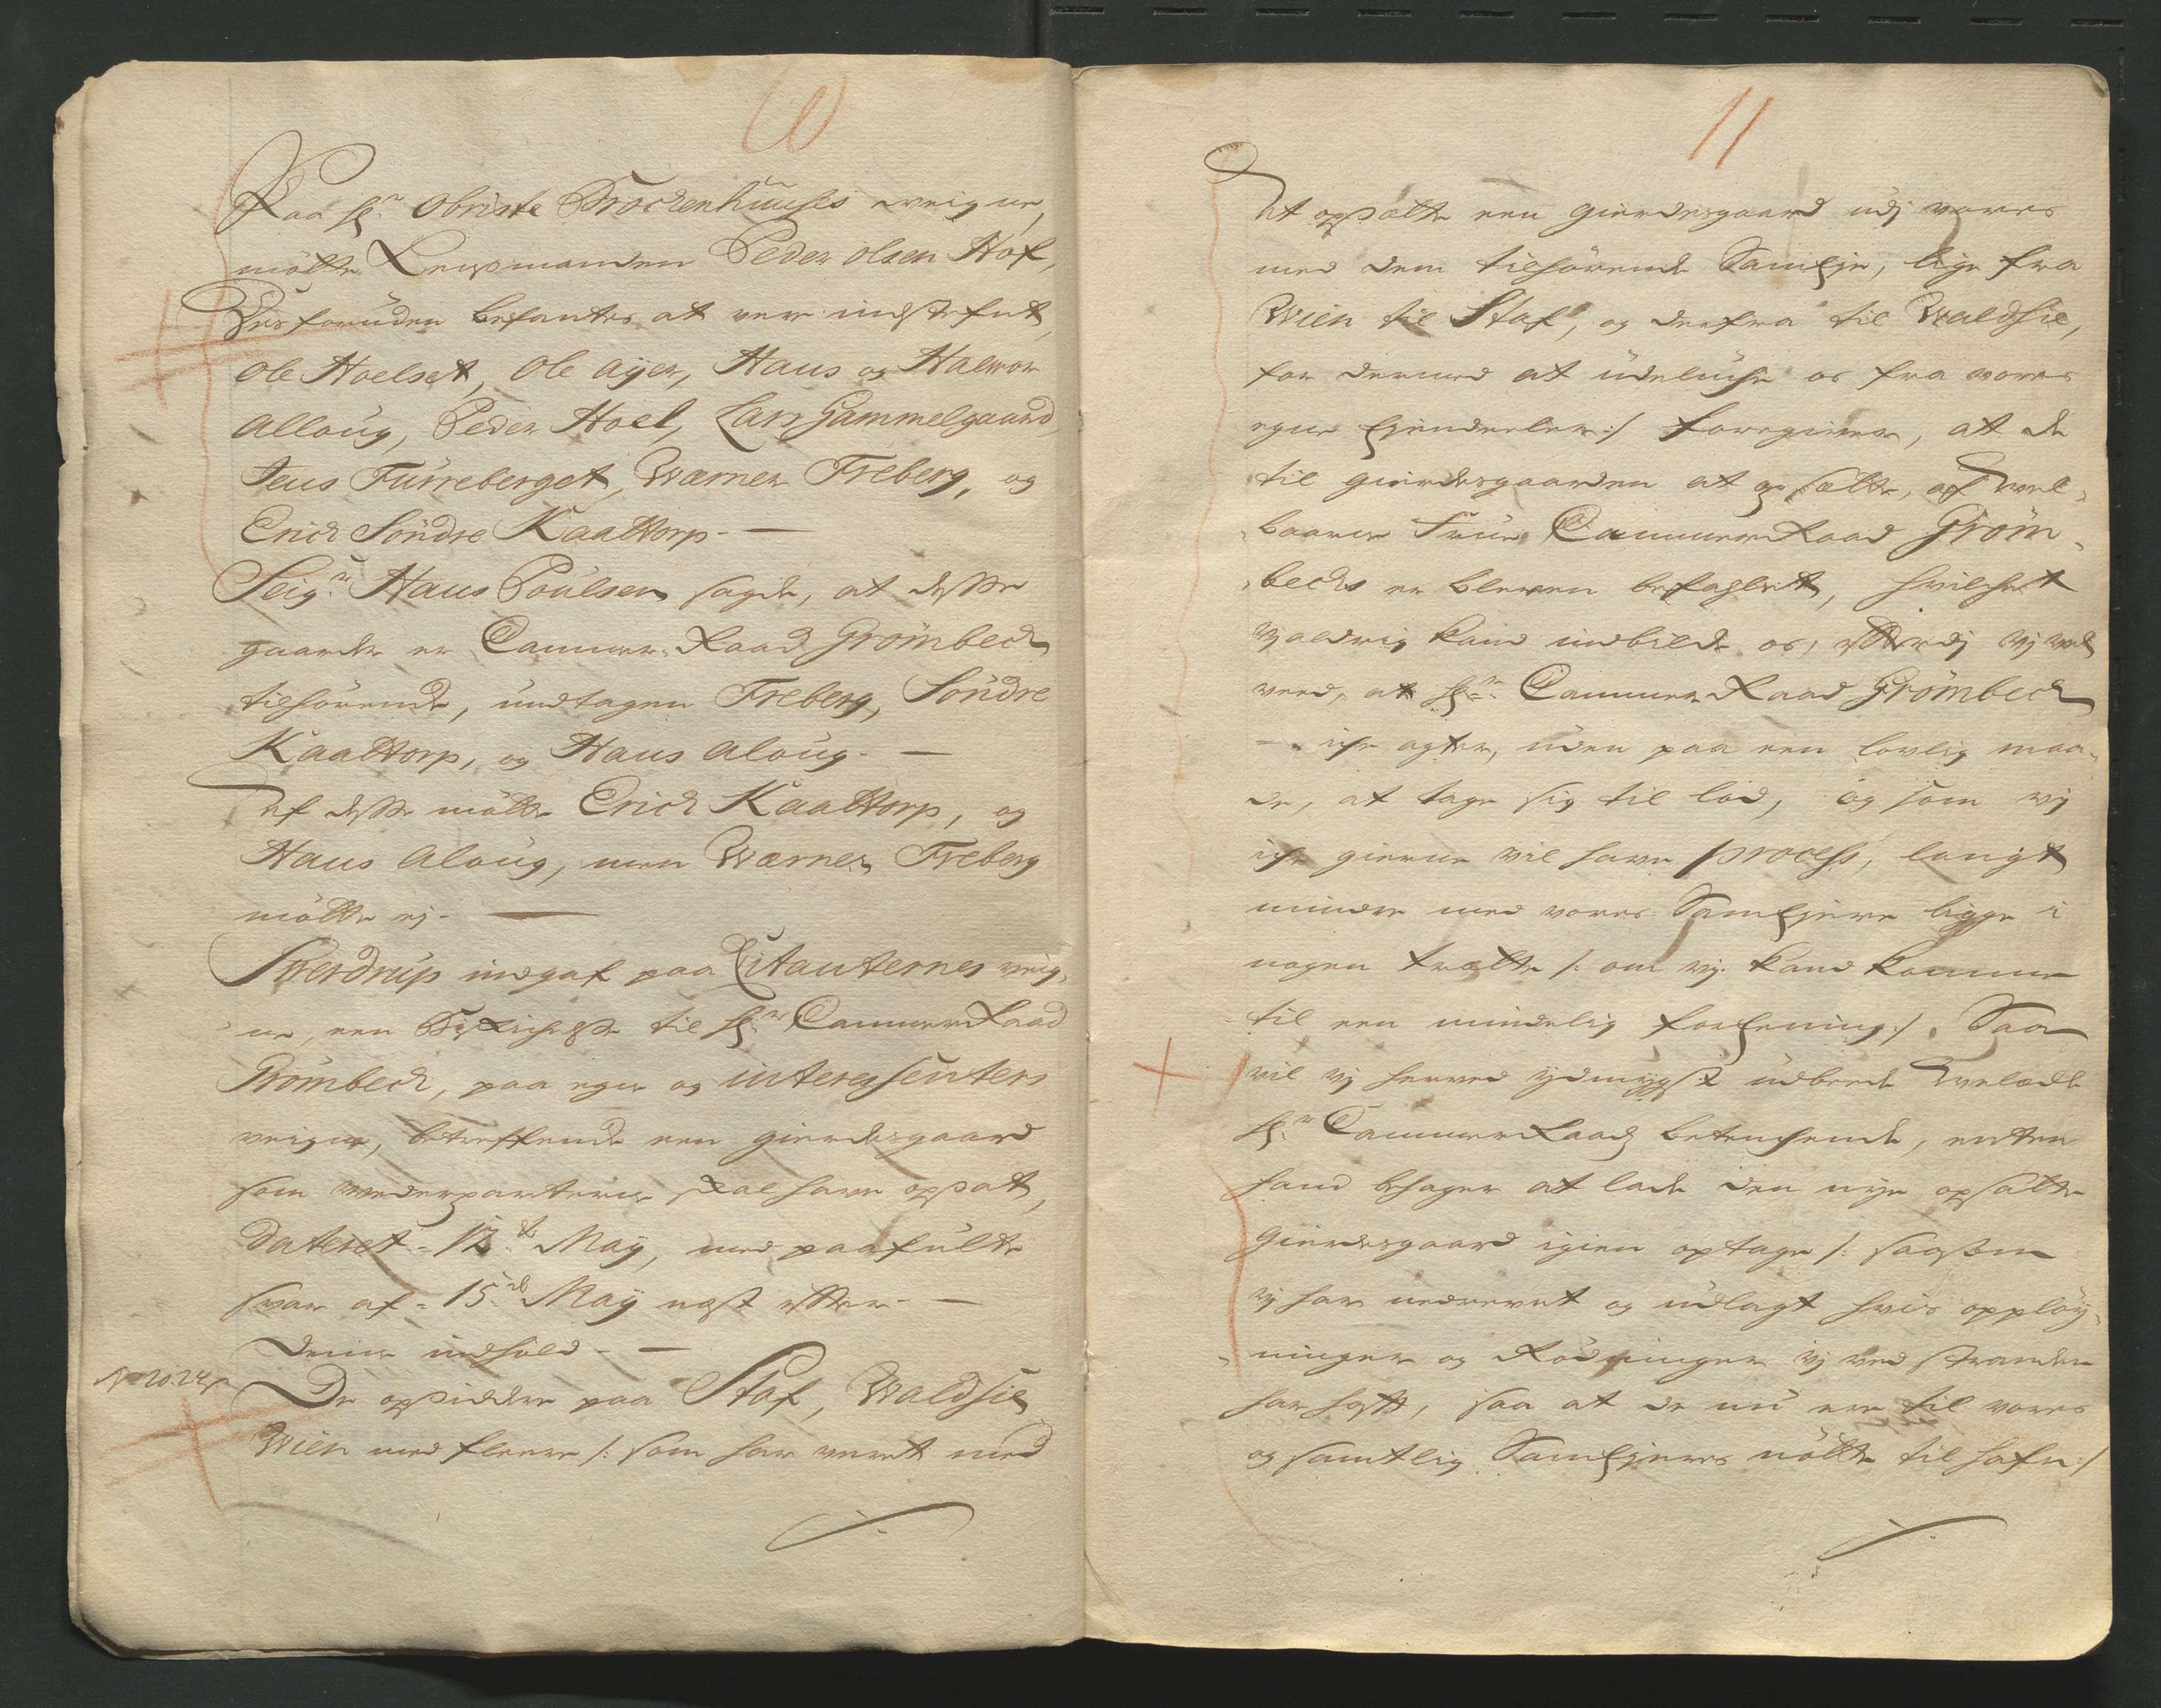 10
Paa hr. Obriste Brockenhuuses veigne,
mötte Lensmanden Peder Olsen Hof,
Desforuden befantes at vere indstefnt,
Ole Hoelset, Ole Ayer, Hans og Halvor
Alloug, Peder Hoel, Lars Gammelgaard,
Jens Furreberget, Wærner Freberg, og
Erich Söndre Kaattorp. —
Seigr. Hans Poulsen sagde, at desse
gaarde er Cammer-Raad Grömbech
tilhörende, undtagen Freberg, Söndre
Kaattorp, og Hans Aloug. —
Af desse mötte Erich Kaattorp, og
Hans Aloug, men Wærner Freberg
mötte ej. —
Sverdrup indgaf paa Citanternes veig-
ne, een til hr. CammerRaad
Grömbech, paa egne og interessenters
veigne, betreffende een gierdesgaard
som vederparterne skal have opsat,
dateret 12te May, med paafulte
svar af 15de May næst efter. —
Dens indhold —
No. 20. 24
De opsiddere paa Staf, Waldsie,
Wien med fleere /: som har veret med
11
At opsætte een gierdesgaard udj vores
med dem tilhörende Sameje, lige fra
Wien til Staf, og derfra til Waldsie,
for dermed at udeluche os fra vores
egne Ejendeeler :/ foregiver, at de
til gierdesgaarden at op sætte, af Wel-
baarne Frue CammerRaad Gröm-
bechs er bleven befahlet, hvilchet
vj aldrig kand indbilde os, efterdj vj vel
veed, at hr. CammerRaad Grömbech
iche agter, uden paa een lovlig maa-
de, at tage sig til lod, og som vj
iche gierne vil have process, langt
mindre med vores Samejere ligge i
nogen trætte /: om vj kand komme
til een mindelig forening :/. Saa
vil vj herved ydmygst udbeede Velædle
hr. CammerRaads betenchende, enten
hand behager at lade den nye opsatte
Gierdesgaard igien optage /: saasom
vj har nedrevet og udlagt hvis opplöy-
ninger og Rödninger vj ved stranden
har haft, saa at de nu ere til vores
og samtlig Samejeres nötte til hafn :/